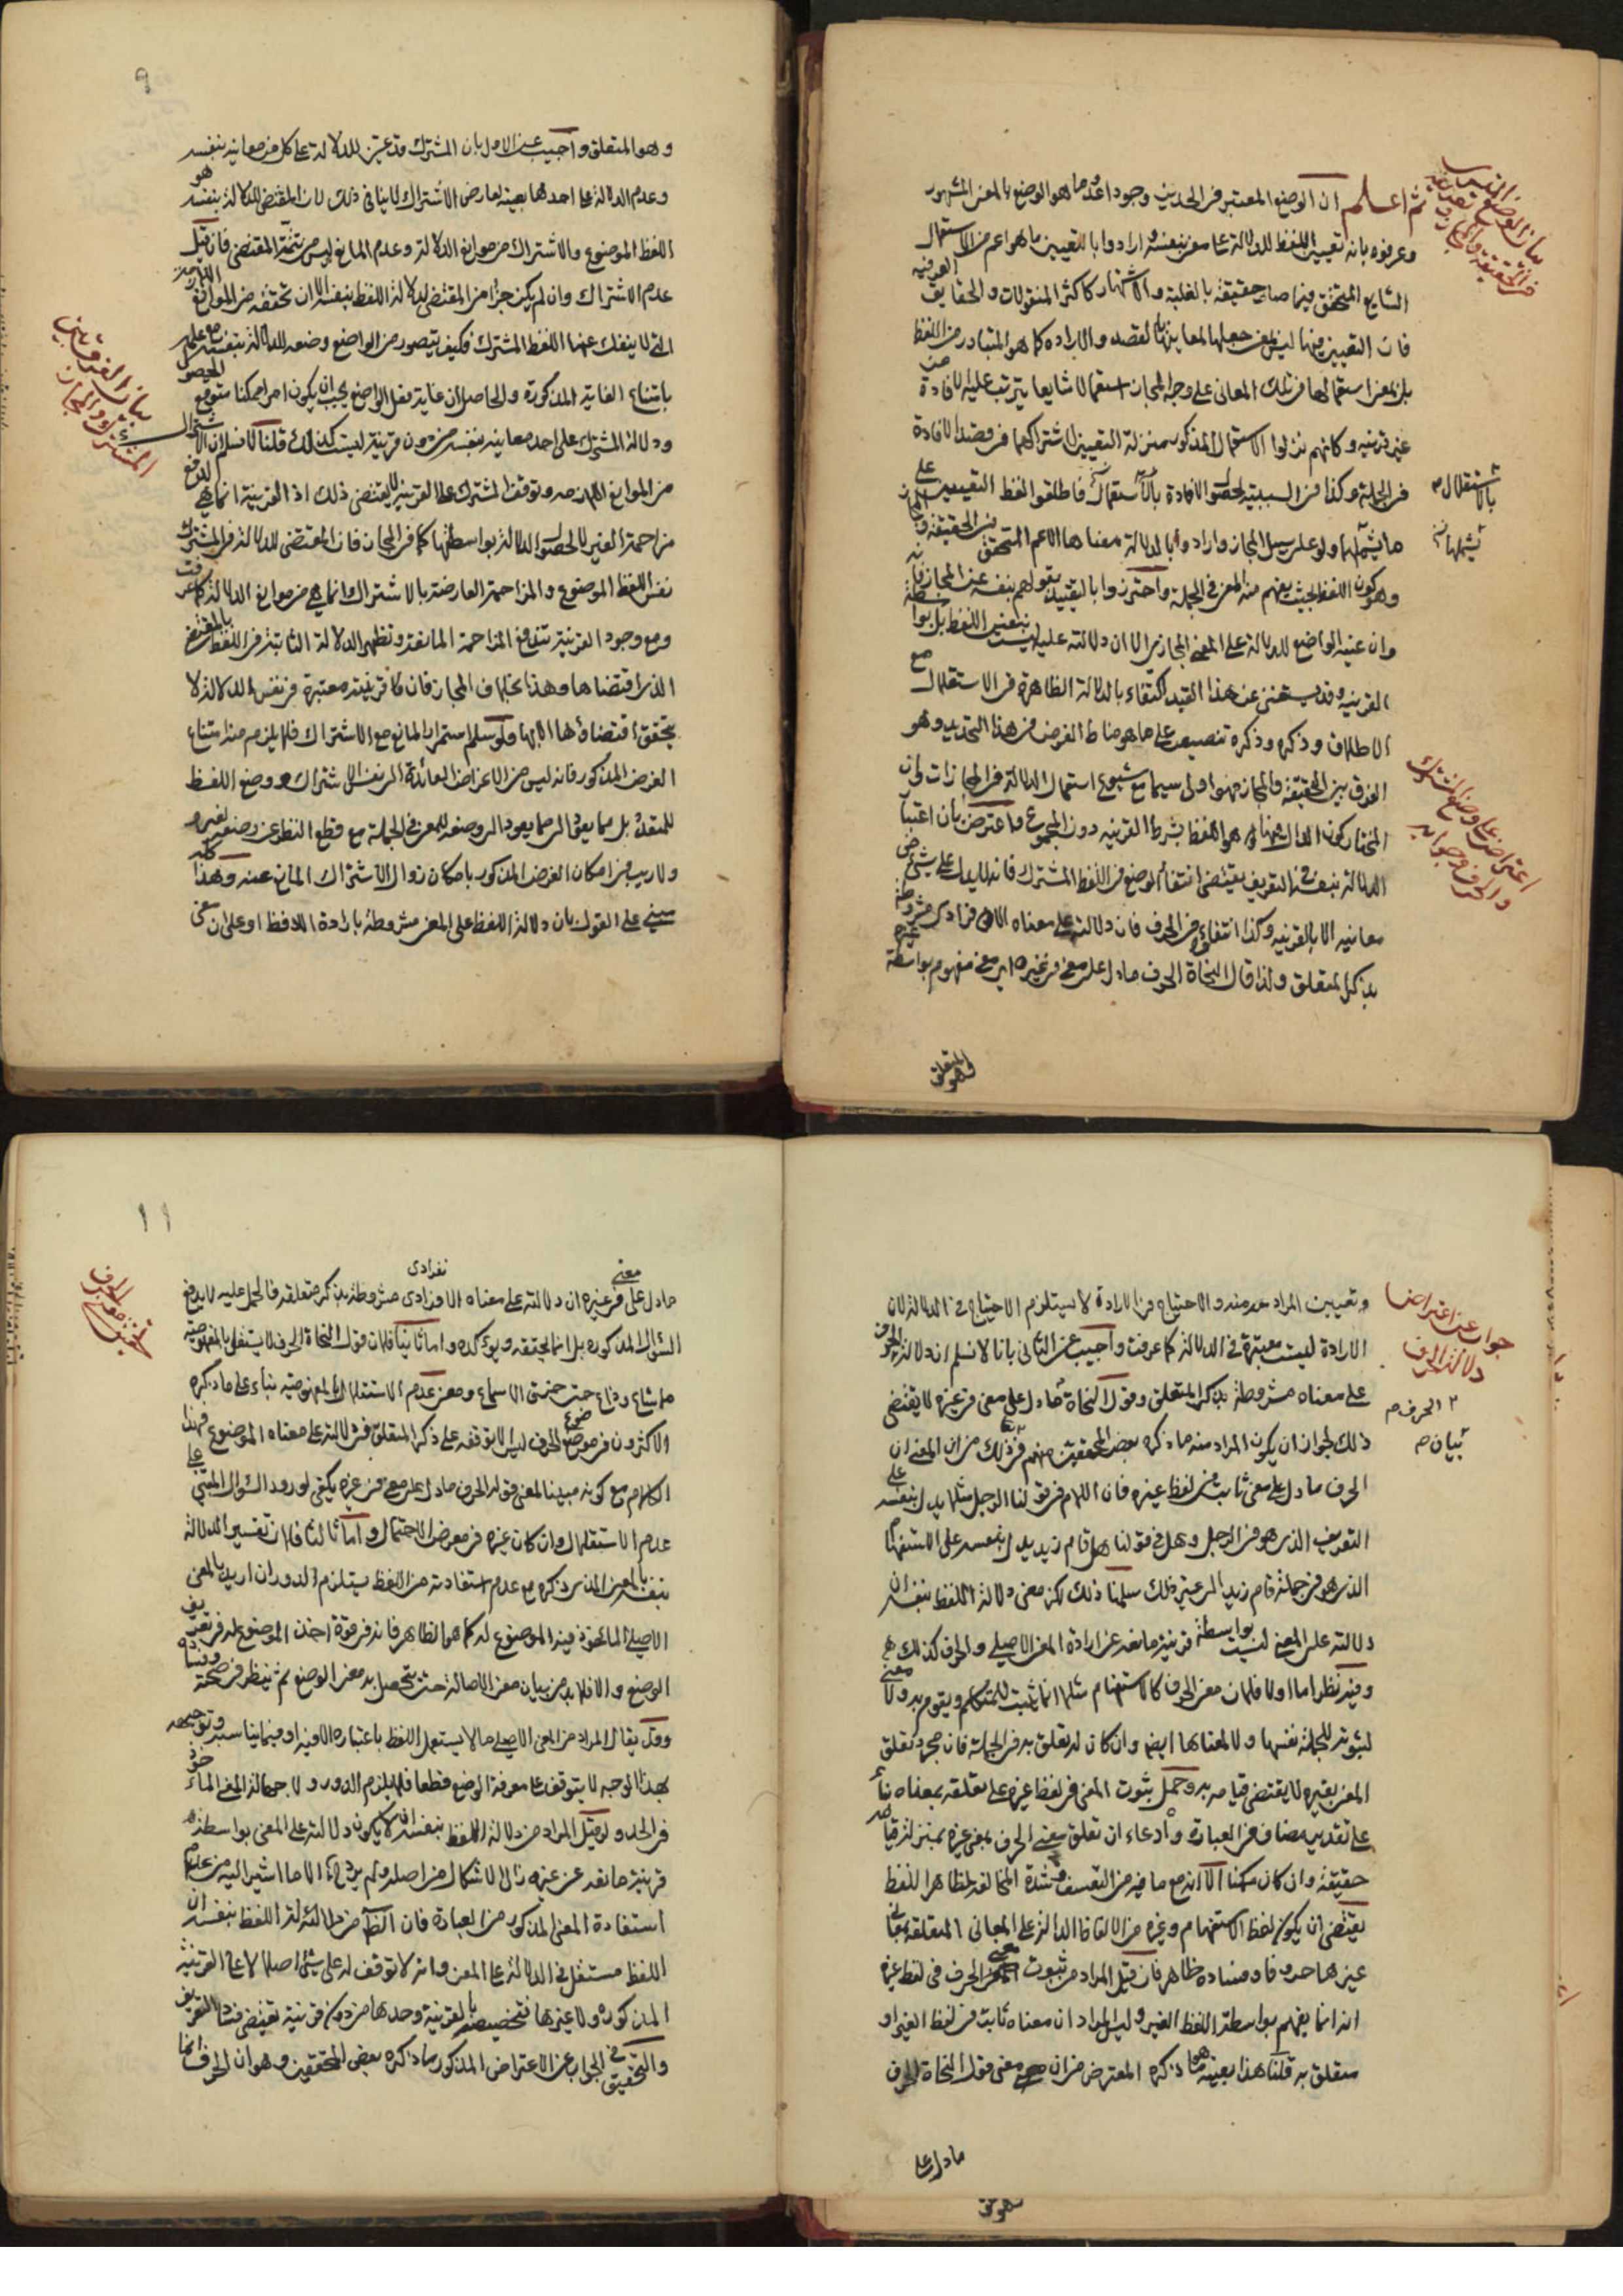 ثم اعلم ان الوضع المعتبر في الحدين وجودا وعدما هو الوضع بالمعنى المشهور
وعرفوه بانه تعيين اللفظ للدلالة على معنى بنفسه وارادوا بالتعيين ما هو اعم من الاستعمال
الشايع المتحقق فيما صار حقيقة بالغلبة والاشتهار كاكثر المنقولات والحقايق العرفية
فان التعيين فيها ليس بمعنى جعلها لمعانيها بالقصد والارادة كما هو المتبادر من اللفظ
بل بمعنى استعمالها في تلك المعانى على وجه المجاز استعمالا شايعا يترتب عليه الافادة من
غير قرينة وكانهم نزلوا الاستعمال المذكور منزلة التعيين لاشتراكهما في قصد الافادة
في الجملة وكذا في السببية لحصول الافادة بالاستعمال فاطلقوا لفظ التعيين على
ما يشملهما ولو على سبيل المجاز وارادوا بالدلالة معناها الاعم المتحقق في الحقيقة والمجاز
وهو كون اللفظ بحيث يفهم منه المعنى في الجملة واحترزوا بالتقييد بقولهم بنفسه عن المجاز فانه
وان عينه الواضع للدلالة على المعنى المجازى الا ان دلالته عليه ليست بنفس اللفظ بل بواسطة
القرينة وقد يستغنى عن هذا القيد اكتفاء بالدلالة الظاهرة في الاستقلال مع
الاطلاق وذكره وذكره تنصيص على ما هو مناط الغرض من هذا التحديد وهو
الفرق بين الحقيقة والمجاز فهو اولى سيما مع شيوع استعمال الدلالة في المجازات وان
المختار كون الدال فيها هو اللفظ بشرط القرينة دون المجموع واعترض بأن اعتبار
الدلالة بنفسه في التعريف يقتضى انتفاء الوضع في اللفظ المشترك فانه لا يدل على شئ من
معانيه الا بالقرينة وكذا انتفاؤه في الحرف فان دلالته على معناه الافرادى مشروطة
بذكر المتعلق ولذا قال النحاة الحرف ما دل على معنى في غيره اى معنى مفهوم بواسطة غيره
وهو المتعلق
بيان الوضع
بالاستقلال
يشملهما
اعتراض على وضع المشترك
والحرف وجوابه
٩
وهو المتعلق واجيب عن الاول بان المشترك قد عين للدلالة على كل من معانيه بنفسه
وعدم الدلالة على احدها بعينه لعارض الاشتراك لا ينافى ذلك لان المقتضى للدلالة بنفسه هو
اللفظ الموضوع والاشتراك من موانع الدلالة وعدم المانع ليس من تتمة المقتضى فان قيل
عدم الاشتراك وان لم يكن جزأ من المقتضى لدلالة اللفظ بنفسه الا ان تحققه من الموانع اللازمة
التى لا ينفك عنها اللفظ المشترك فكيف يتصور من الواضع وضعه للدلالة بنفسه مع علمه
بامتناع الغاية المذكورة والحاصل ان غاية فعل الواضع يجب ان يكون امرا ممكنا متوقع الحصول
ودلالة المشترك على احد معانيه بنفسه من دون قرينة ليست كذلك قلنا لا نسلم ان الاشتراك
من الموانع اللازمة وتوقف المشترك على القرينة لا يقتضى ذلك اذ القرينة انما هى لدفع
مزاحمة الغير لا لحصول الدلالة بواسطتها كما في المجاز فان المقتضى للدلالة في المشترك
نفس اللفظ الموضوع والمزاحمة العارضة بالاشتراك انما هى من موانع الدلالة كما عرفت
ومع وجود القرينة تندفع المزاحمة المانعة وتظهر الدلالة الثابتة في اللفظ بالمقتضى
الذى اقتضاها وهذا بخلاف المجاز فان قرينته معتبرة في نفس الدلالة لا
يتحقق اقتضاؤها الا بها ولو سلم استمرار المانع مع الاشتراك فلا يلزم منه امتناع
الغرض المذكور فانه ليس من الاغراض العائدة الى نفس الاشتراك ووضع اللفظ
للمتعدد بل مما يعود الى وضعه للمعنى في الجملة مع قطع النظر عن وضعه لغيره
ولا ريب في امكان الغرض المذكور بامكان زوال الاشتراك المانع عنه وهذا كله
مبنى على القول بان دلالة اللفظ على المعنى مشروطة بارادة اللافظ او على ان معنى
بيان الفرق بين
المشترك والمجاز
وتعيين المراد منه والاحتياج في الارادة لا يستلزم الاحتياج في الدلالة لان
الارادة ليست معتبرة في الدلالة كما عرفت واجيب عن الثانى بانا لا نسلم ان دلالة الحرف
على معناه مشروطة بذكر المتعلق وقول النحاة ما دل على معنى في غيره لا يقتضى
ذلك لجواز ان يكون المراد منه ما ذكره بعض المحققين منهم في ذلك من ان المعنى ان
الحرف ما دل على معنى ثابت في لفظ غيره فان اللام في قولنا الرجل مثلا يدل بنفسه على
التعريف الذى هو في الرجل وهل في قولنا هل قام زيد يدل بنفسه على الاستفهام
الذى هو في جملة قام زيد الى غير ذلك سلمنا ذلك لكن معنى دلالة اللفظ بنفسه ان
دلالته على المعنى ليست بواسطة قرينة مانعة عن ارادة المعنى الاصلى والحرف كذلك
وفيه نظر اما اولا فلان معنى الحرف كالاستفهام مثلا انما يثبت للمتكلم ويقوم به ولا معنى
لثبوته للجملة نفسها ولا لمعناها ايضا وان كان له تعلق به في الجملة فان مجرد تعلق
المعنى بغيره لا يقتضى قيامه به وحمل ثبوت المعنى في لفظ غيره على تعلقه بمعناه بناء
على تقدير مضاف في العبارة وادعاء ان تعلق معنى الحرف بمعنى غيره بمنزلة قيامه
حقيقة وان كان ممكنا الا انه مع ما فيه من التعسف وشدة المخالفة لظاهر اللفظ
يقتضى ان يكون لفظ الاستفهام وغيره من الالفاظ الدالة على المعانى المتعلقة بمعانى
غيرها حروفا وفساده ظاهر فان قيل المراد من ثبوت معنى الحرف في لفظ غيره
انه انما يفهم بواسطة اللفظ الغير وليس المراد ان معناه ثابت في لفظ الغير او
متعلق به قلنا هذا بعينه ما ذكره المعترض من ان معنى قول النحاة الحرف
ما دل على
جواب عن اعتراض
دلالة الحرف
الحرف
بيان
١١
ما دل على معنى في غيره ان دلالته على معناه الافرادى مشروطة بذكر متعلقه فالحمل عليه لا يدفع
السؤال المذكور بل انما يحققه ويؤكده واما ثانيا فلان قول النحاة الحرف لا يستقل بالمفهومية
مما شاع وذاع حتى خرق الاسماع ومعنى عدم الاستقلال بالمفهومية بناء على ما ذكره
الاكثرون في وضع الحرف ليس الا توقفه على ذكر المتعلق في دلالته على معناه الموضوع له فهذا
الكلام مع كونه مبينا لمعنى قوله الحرف ما دل على معنى في غيره يكفى لورود السؤال المبنى على
عدم الاستقلال وان كان غيره في معرض الاحتمال واما ثالثا فلان تفسير الدلالة
بنفسه بالمعنى الذى ذكره مع عدم استفادته من اللفظ يستلزم الدور ان اريد بالمعنى
الاصلى المأخوذ فيه الموضوع له كما هو الظاهر فانه في قوة اخذ الموضوع له في تعريف
الوضع والا فلا بد من بيان معنى الاصالة حتى يتحصل به معنى الوضع ثم ينظر في صحته وفساده
وقد يقال المراد من المعنى الاصلى ما لا يستعمل اللفظ باعتباره الا فيه او فيما يناسبه وتوجيهه
بهذا الوجه لا يتوقف على معرفة الوضع قطعا فلا يلزم الدور ولا جهالة المعنى المأخوذ
في الحد ولو قيل المراد من دلالة اللفظ بنفسه ان لا يكون دلالته على المعنى بواسطة
قرينة مانعة عن غيره زال الاشكال من اصله ولم يرد الا ما اشير اليه من عدم
استفادة المعنى المذكور من العبارة فان الظاهر من دلالة اللفظ بنفسه ان
اللفظ مستقل في الدلالة على المعنى وانه لا توقف له على شئ اصلا لا على القرينة
المذكورة ولا غيرها فتخصيصه بالقرينة وحدها من دون قرينة يقتضى فساد التعريف
والتحقيق في الجواب عن الاعتراض المذكور ما ذكره بعض المحققين وهو ان الحرف انما
تحقيق معنى الحرف